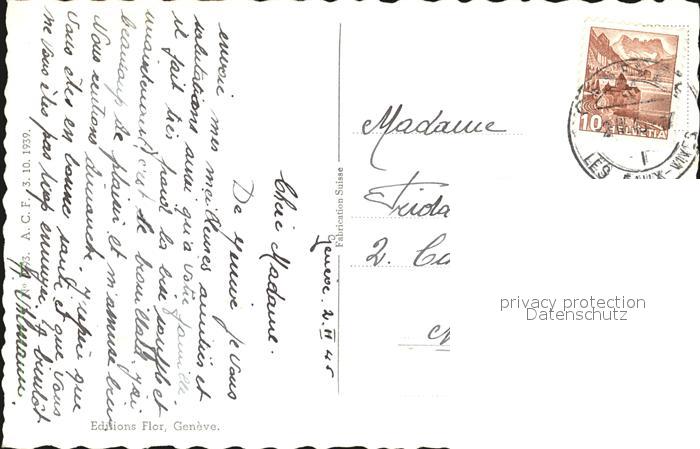 Genève. 2. II 45
Chère Madame.
De Genève je vous
envoie mes meilleures amitiés et
salutations ainsi qu'à votre famille.
il fait très froid la bise souffle et
maintenant c'est le brouillard, j'ai
beaucoup de plaisir et m'amuse bien
Nous rentrons dimanche. J'espère que
vous êtes en bonne santé et que vous
ne vous êtes pas trop ennuyée. A bientôt
Uhlmann.
Madame
Frida
2.
10
HELVETIA
LES EAUX-VIVES
Fabrication Suisse
A. C. F. 3. 10. 1939.
Editions Flor, Genève.
privacy protection
Datenschutz